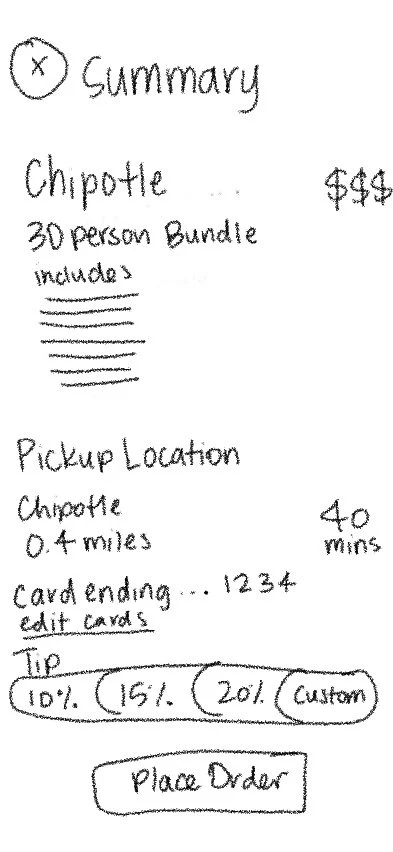 X Summary
Chipotle $$$
30 person Bundle
includes
Pickup Location
Chipotle 40
0.4 miles mins
Card ending ... 1234
edit cards
Tip
10% 15% 20% Custom
Place Order